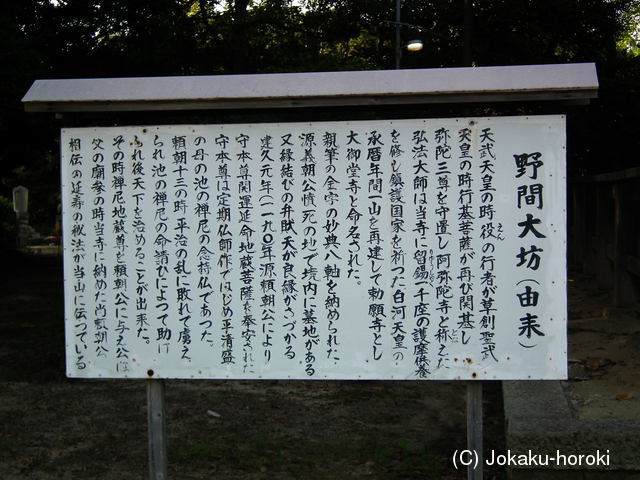 野間大坊(由来)
天武天皇の時役の行者が草創聖武
天皇の時行基菩薩が再び開基し
弥陀三尊を守置し阿弥陀寺と称えた
弘法大師は当寺に留錫一千座の護摩供養
を修し鎮護国家を祈った白河天皇の
承暦年間一山を再建して勅願寺とし
大御堂寺と命名された。
親筆の金字の妙典八軸を納められた、
源義朝公憤死の地で境内に墓地がある
又縁結びの弁財天が良縁がさづかる
建久元年(一一九〇)年源頼朝公により
守本尊開運延命地蔵菩薩を奉安された
守本尊は定朝仏師作ではじめ平清盛
の母の池の禅尼の念持仏であった。
頼朝十三の時平治の乱に敗れて虜え
られ池の禅尼の命請ひによつて助け
られ後天下を治めることが出来た。
その時禅尼地蔵尊を頼朝公に与え公は
父の廟参の時当寺に納めた尚頼朝公
相伝の延寿の秘法が当山に伝つている
えん
りゅうしゃく
(C) Jokaku-horoki